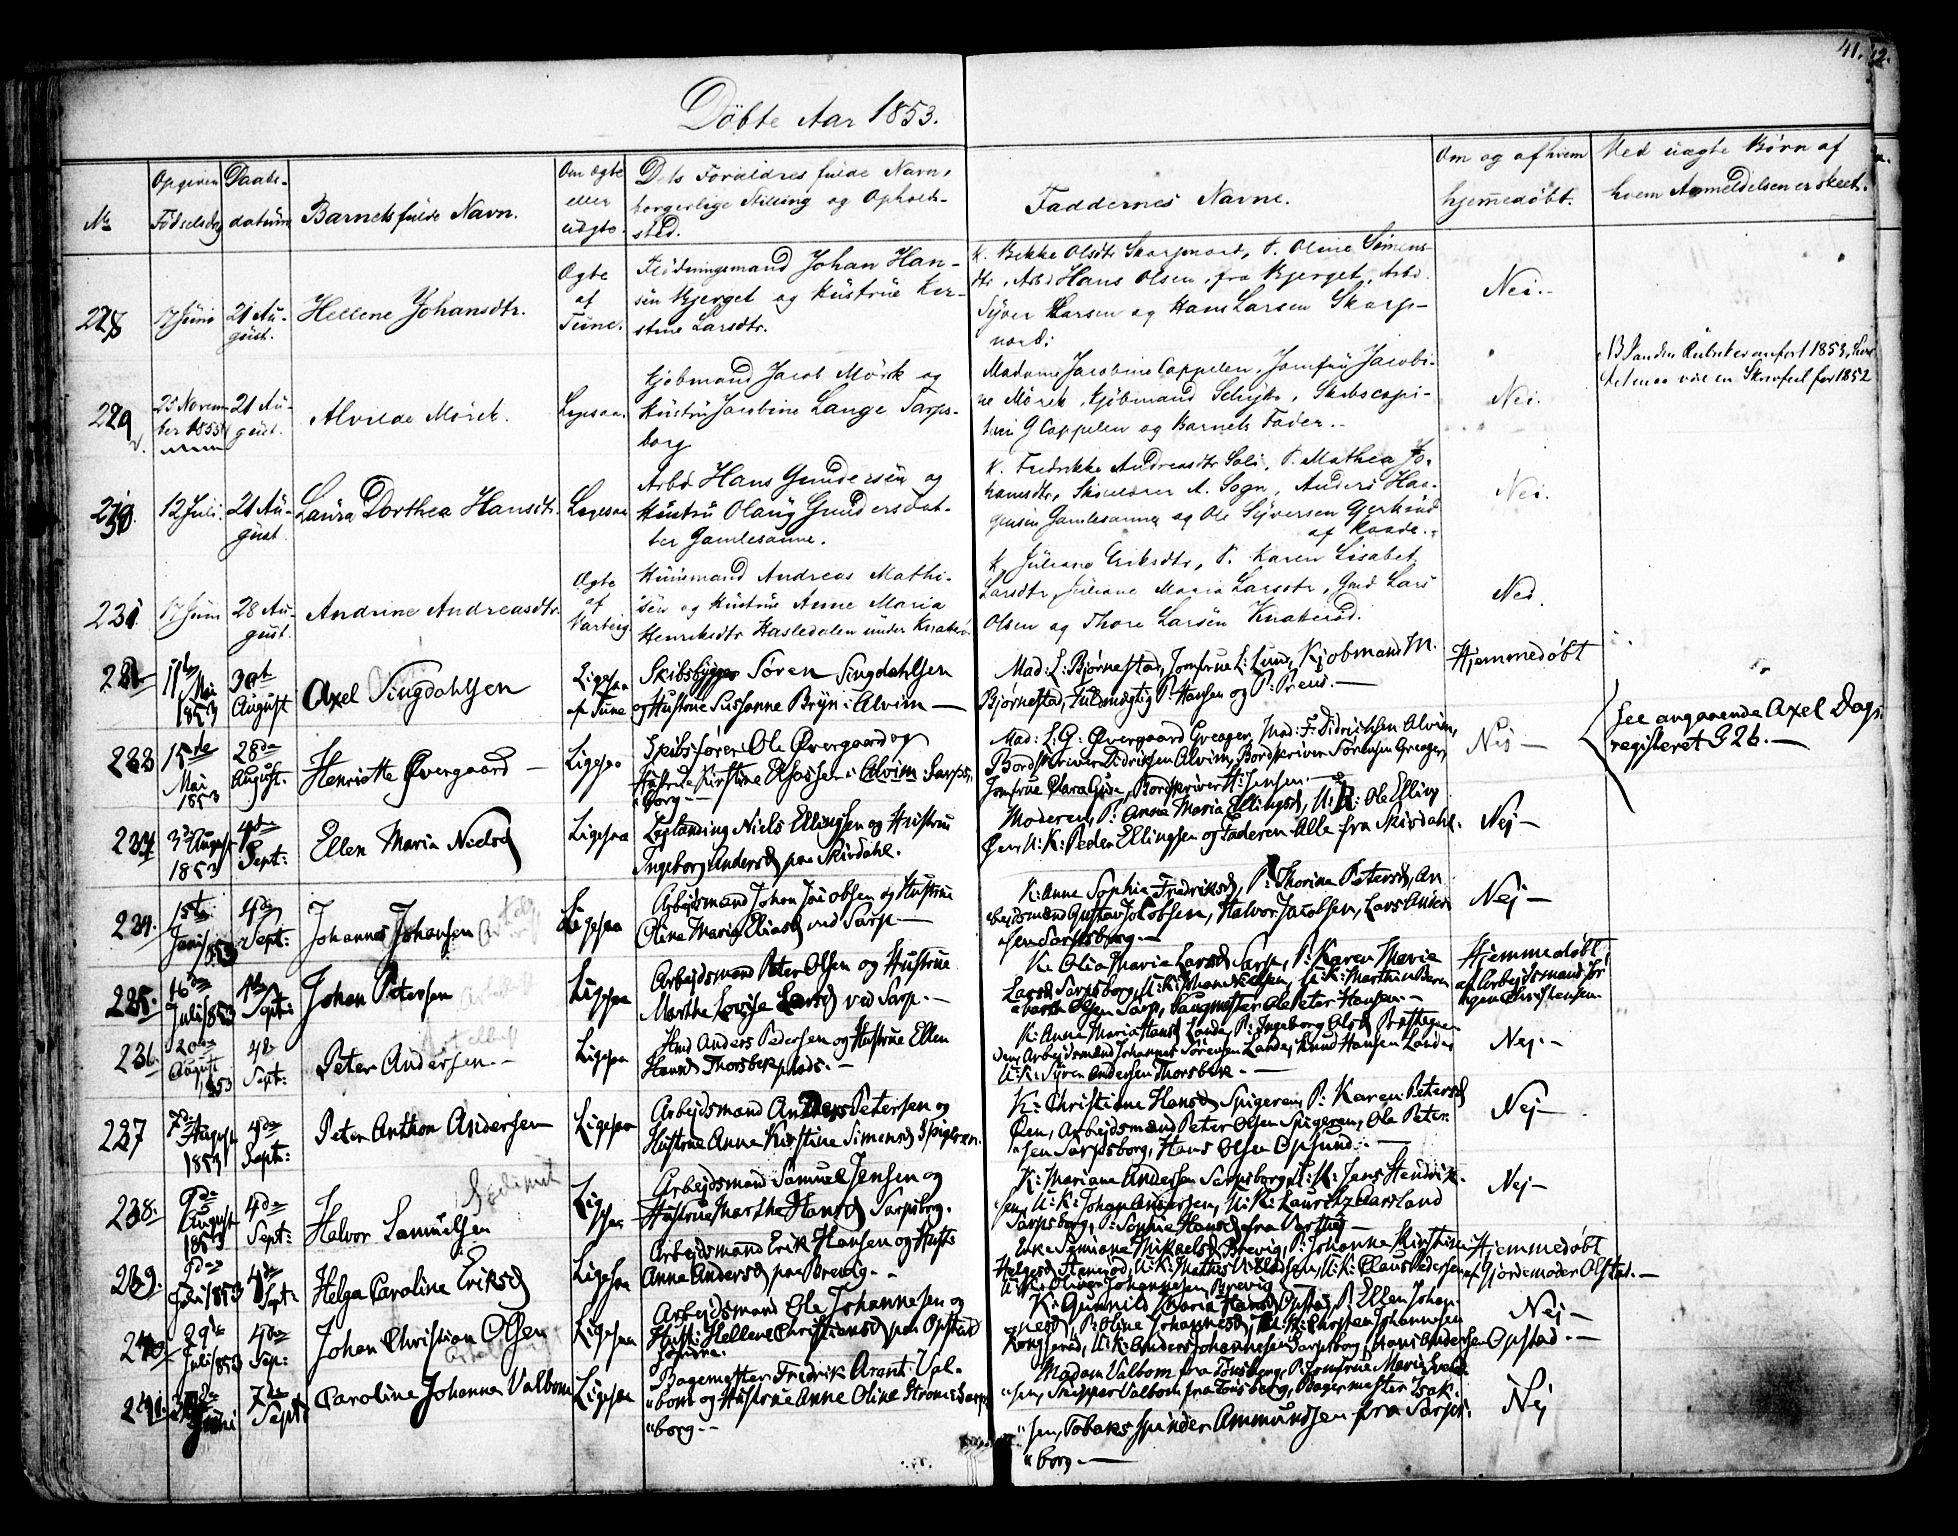 41.
12.
Döbte Aar 1853.
No
Opgiven Födselsdag
Daabs-datum
Barnets fulde Navn.
Om ægte eller uægte.
Dets Forældres fulde Navn, borgerlige Stilling og Opholds-sted.
Faddernes Navne.
Om og af hvem hjemmedöbt.
Ved uægte Börn af hvem Anmeldelsen er skeet.
228
17 Juni
21 Au-
gust.
Hellene Johansdtr.
Ægte
af
Tune.
Flödningsmand Johan Han-
sen Bjerget og Hustrue Ker-
stine Larsdtr.
K. Bekke Olsdtr Skarpnord, P. Oline Simens
dtr, Arbd Hans Olsen, fra Bjerget, Arbd.
Syver Larsen og Hans Larsen Skarp-
nord.
Nei.
229
25 Novem
ber 1853
21 Au-
gust.
Alvilde Mörck.
Ligesaa.
Kjöbmand Jacob Mörk og
Hustru Jacobine Lange Sarps-
borg
Madame Jacobine Cappelen, Jomfru Jacobi-
ne Mörck, Kjöbmand Schejbo, Skibscapi-
tain G Cappelen og Barnets Fader.
Nei.
230
12 Juli.
21 Au-
gust
Laura Dorthea Hansdtr.
Ligesaa
Arbd Hans Gundersen og
Hustru Olaug Gundersdat-
ter Gamlesanne.
K. Fredrikke Andreasdtr Soli, P. Mathea Jo-
hansdtr, Skolelærer A. Sogn, Anders Haa-
gensen Gamlesanne og Ole Syversen Gjerlaud
af Raade.
Nei.
231
17 Juni
28 Au-
gust.
Andrine Andreasdtr.
Ægte
af
Varteig
Huusmand Andreas Mathi-
sen og Hustrue Anne Maria
Henriksdtr Hasledalen under Knatterö
K. Juliane Eriksdtr, P. Karen Lisabet
Larsdtr, Juliane Maria Larsdtr, Gmd Lars
Olsen og Thore Larsen Knatteröd.
Nei.
11te
Mai
1853
30te
August
Axel Singdahlsen
Ligesaa
af Tune
Skibsbygger Sören Singdahlsen
og Hustrue Susanne Bryn i Alvim —
Mad: L: Björnestad, Jomfrue L: Lund, Kjöbmand M.
Björnestad, Fulmægtig P: Hansen og P: Preus. —
Hjemmedöbt
See angaaende Axel Dags
registeret S 26. —
233
15de
Mai
1853
28de
August.
Henriette Øvergaard —
Ligesaa
Skibsförer Ole Øvergaard og
Hustrue Kirstine Elsasser i Alvim Sarps-
borg —
Mad: L: G: Øvergaard Greager, Mad: F: Didrichsen Alvim,
Bordskriver Didriksen Alvim, Bordskriver Sörensen Greager,
Jomfrue Clara Gude, Bordskriver H: Jensen. —
Nej —
234
3de August
1853
4de
Sept:
Ellen Maria Nielsd
Ligesaa
Löslanding Niels Ellingsen og Hustrue
Ingeborg Andersd paa Skivdahl.
Moderen, P: Anne Maria Ellingsd, U: K: Ole Elling
sen, U: K: Peder Ellingsen og Faderen Alle fra Skivdahl.
Nej —
234.
15de
Juni 1853
4de
Sept:
Johannes Johansen
Ligesaa
Arbejdsmand Johan Jacobsen og Hustrue
Oline Maria Eliasd ved Sarp. —
K: Anne Sophie Fredriksd, P: Thorine Petersd, Ar
bejdsmand Gustav Jacobsen, Halvor Jacobsen, Lars Ander
sen Sarpsborg. —
Nej —
235.
16de
Juli 1853
4de
Sept:
Johan Petersen
Ligesaa
Arbejdsmand Peter Olsen og Hustrue
Marthe Lovise Larsd ved Sarp. —
K: Olia Maria Larsd Sarp, P: Karen Marie
Larsd Sarpsborg, U: K: Iman Nielsen, U: K: Marthin Bern
hardt Olsen Sarp, Saugmester Ole Peter Hansen. —
Hjemmedöbt,
af Arbejdsmand Jör
gen Christensen.
236.
20de
August
1853
4de
Sept:
Peter Andersen. —
Ligesaa
Hmd Anders Pedersen og Hustrue Ellen
Hansd Thorsbekplads. —
K: Anne Maria Hansd Lande, P: Ingeborg Olsd Præstegaar
den, Arbejdsmand Johannes Sörensen Lande, Knud Hansen Lande,
U: K: Syver Andersen Thorsbek. —
Nej. —
237
7de
August
1853
4de
Septr:
Peter Anthon Andersen
Ligesaa
Arbejdsmand Anders Petersen og
Hustrue Anne Kirstine Simensd Spigeren.
K: Christiane Hansd Spigeren, P: Karen Petersd
Öen, Arbejdsmand Peter Olsen Spigeren, Ole Peter-
sen Sarpsborg, Hans Olsen Opsund. —
Nej —
238.
9de
August
1853
4de
Sept:
Halvor Samuelsen
Ligesaa
Arbejdsmand Samuel Jensen og
Hustrue Marthe Hansd Sarpsborg.
K: Mariane Andersen Sarpsborg, U: K: Jens Hendrik-
sen, U: K: Johan Andersen, U: K: Lauritz Aarsland
Sarpsborg, P: Sophie Hansd fra Varteig —
Nej —
239.
Juni 1853
4de
Sept:
Helga Caroline Eriksd
Ligesaa
Arbejdsmand Erik Hansen og Husts
Anne Andersd paa Brevig. —
Enke Symiane Mikaelsd Brevig, P: Johanne Kirstine
Helgesd Stenerod, U: K: Mathis N: Eliassen, U: K: Claus Pedersen
U: K: Oliver Johannesen Brevig
Hjemmedöbt
af Gjordemoder Olstad. —
240
29de
Juli 1853
4de
Sep:
Johan Christian Olsen
Ligesaa
Arbejdsmand Ole Johannesen og
Hust: Hellene Christiansd paa Opstad
K: Gunnild Maria Hansd Opstad, P: Ellen Johan-
nesd, P: Oline Johannesd, U: K: Thorsten Johannesen
Kongsröd, U: K: Anders Johannesen Sarpsborg, Hans Andersen Opstad. —
Nej —
241.
Juni
7de
Sept
Caroline Johanna Valbom
Ligesaa
Bagemester Fredrik Arant Val-
bom og Hustrue Anne Oline Strom i Sarps
borg. —
Madam Valbom fra Tönsberg, P: Jomfrue Marie Evend
sen, Skipper Valbom fra Tönsberg, Bagermester Isak-
sen, Tobaksspinder Ammundsen fra Sarps-
borg. —
Nej